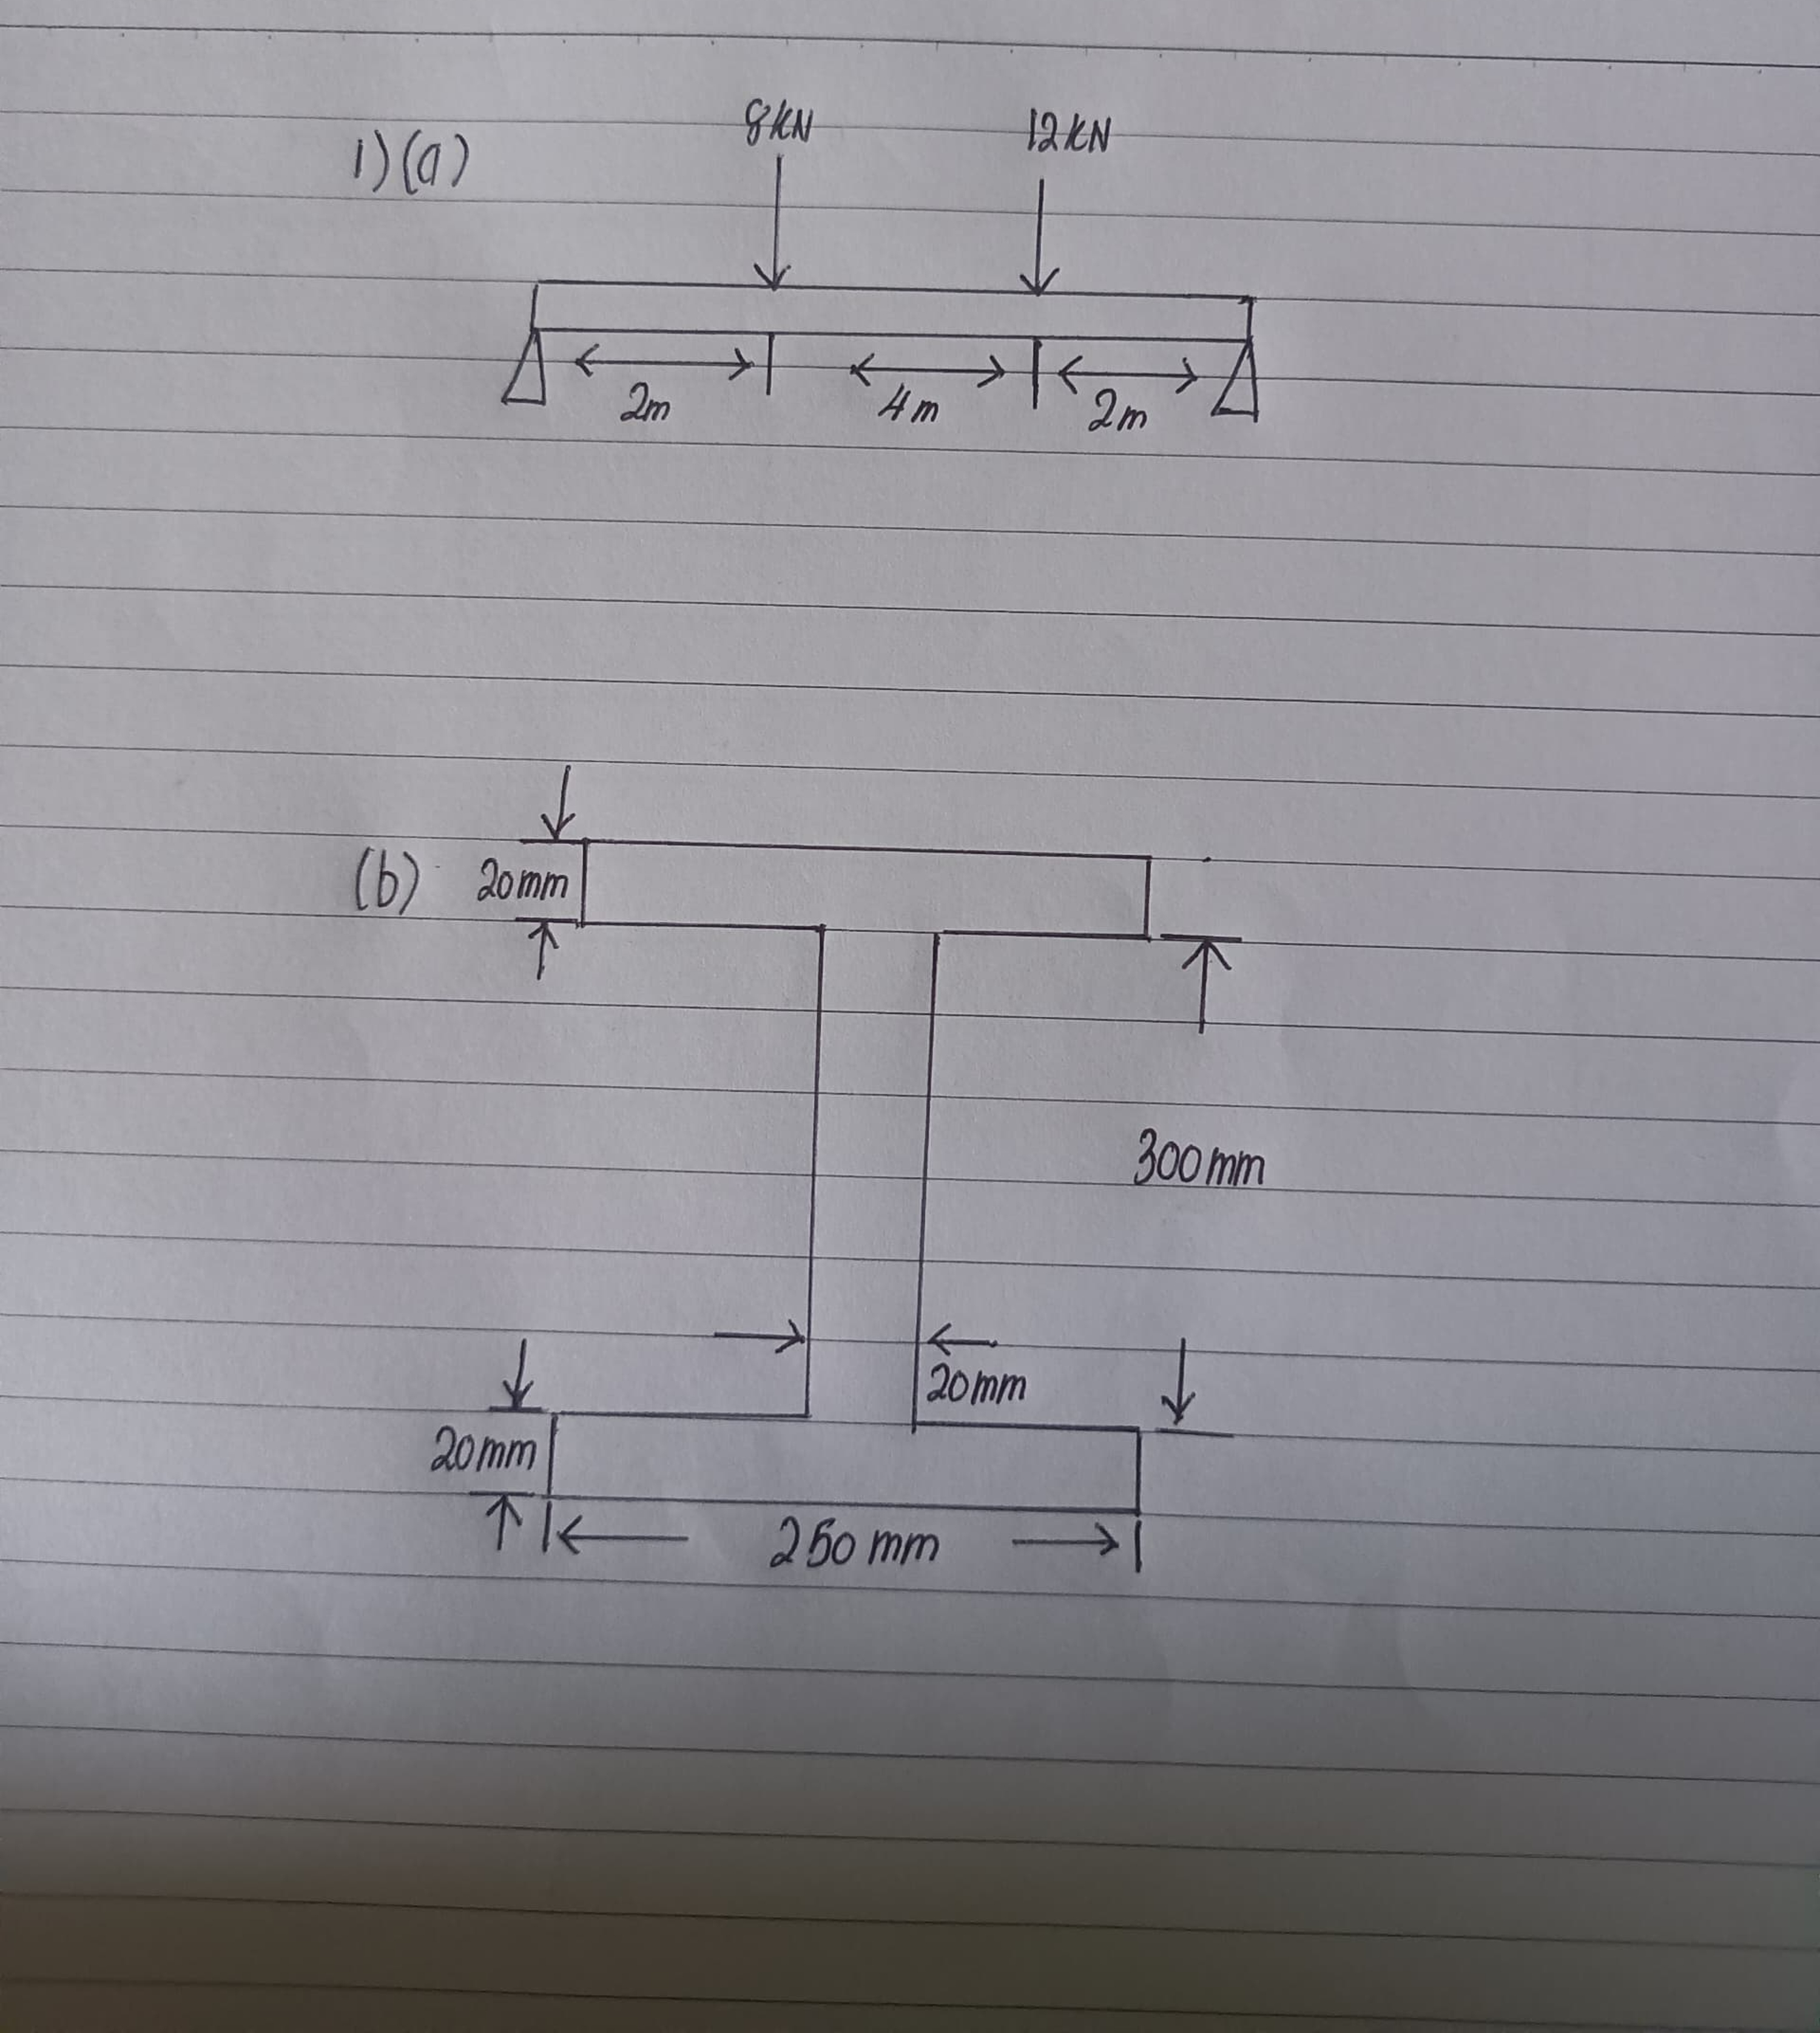 1)(a)
8KN
12KN
2m
4m
2m
(b)
20mm
300mm
20mm
20mm
250mm